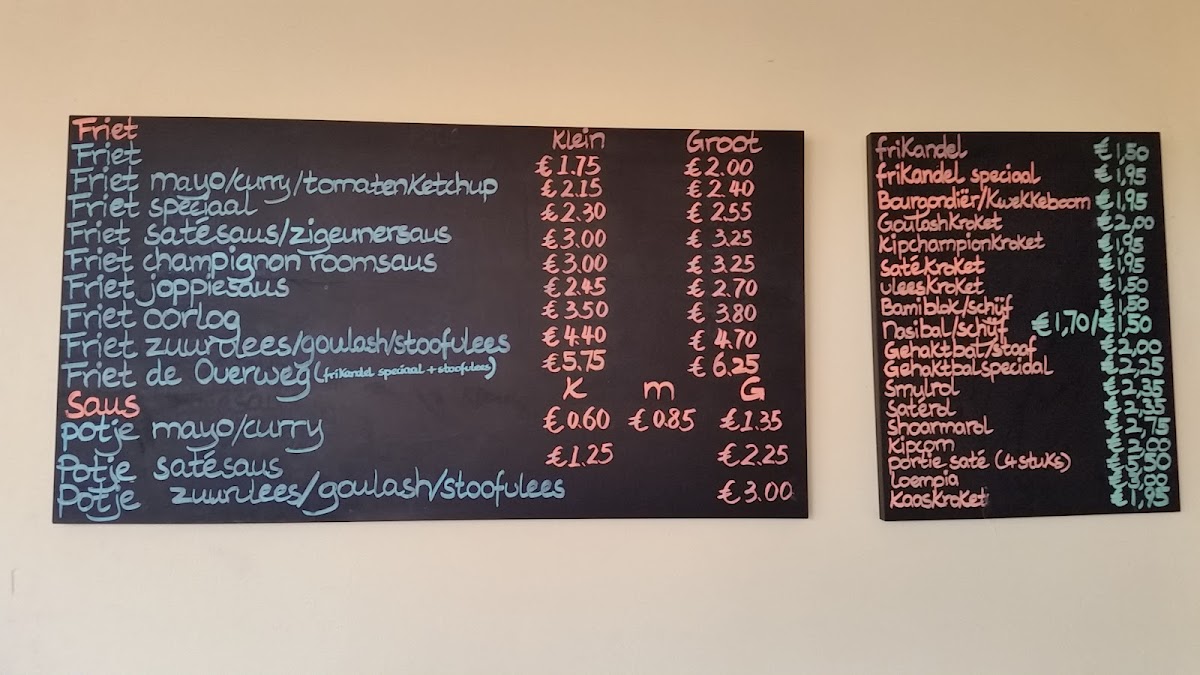 Friet Klein Groot
Friet €1.75 €2.00
Friet mayo/curry/tomatenketchup €2.15 €2.40
Friet speciaal €2.30 €2.55
Friet satésaus/zigeunersaus €3.00 €3.25
Friet champignon roomsaus €3.00 €3.25
Friet joppiesaus €2.45 €2.70
Friet oorlog €3.50 €3.80
Friet zuurvlees/goulash/stoofvlees €4.40 €4.70
Friet de Overweg (frikandel speciaal + stoofvlees) €5.75 €6.25
Saus K m G
potje mayo/curry €0.60 €0.85 €1.35
Potje satésaus €1.25 €2.25
Potje zuurvlees/goulash/stoofvlees €3.00
friKandel €1,50
friKandel speciaal €1,95
Bourgondiër/Kwekkeboom €1,95
Goulashkroket €2,00
Kipchampionkroket €1,95
Satékroket €1,95
vleeskroket €1,50
Bamiblok/schijf €1,50
Nasibal/schijf €1,70/€1,50
Gehaktbal/stoof €2,00
Gehaktbalspecidal €2,25
Smulrol
Saterol
Shoarmarol €2,75
Kipcorn
portie saté (4 stuks)
Loempia
Kaaskroket €1,95